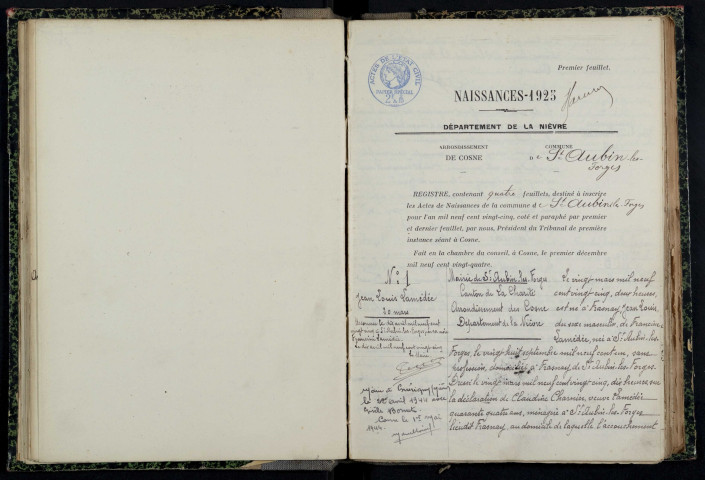 Premier feuillet.
ACTES DE L'ÉTAT CIVIL
PAPIER SPÉCIAL
NAISSANCES-1925
DÉPARTEMENT DE LA NIÈVRE
ARRONDISSEMENT
DE COSNE
COMMUNE
de St Aubin les
Forges
REGISTRE, contenant quatre feuillets, destiné à inscrire
les Actes de Naissances de la commune de St Aubin les Forges
pour l'an mil neuf cent vingt-cinq, coté et paraphé par premier
et dernier feuillet, par nous, Président du Tribunal de première
instance séant à Cosne.
Fait en la chambre du conseil, à Cosne, le premier décembre
mil neuf cent vingt-quatre.
N° 1
Jean Louis Lamédée
20 mars
Reconnu le dix avril mil neuf cent
vingt cinq à St Aubin les Forges
Lamédée
Le dix avril mil neuf cent vingt cinq
Le Maire
Marié à
le avril 1944 avec
Bonnet
Cosne le 1er Mai
1944
Mairie de St Aubin les Forges
Canton de La Charité
Arrondissement de Cosne
Département de la Nièvre
Le vingt mars mil neuf
cent vingt cinq, deux heures,
est né à Frasnay, Jean Louis,
du sexe masculin, de Francine
Lamédée, née à St Aubin les
Forges, le vingt huit septembre mil neuf cent un, sans
profession, domiciliée à Frasnay, de St Aubin les Forges.
Dressé le vingt mars mil neuf cent vingt cinq, dix heures, sur
la déclaration de Claudine Charnier, veuve Lamédée
quarante quatre ans, ménagère à St Aubin les Forges
lieudit Frasnay, au domicile de laquelle l'accouchement